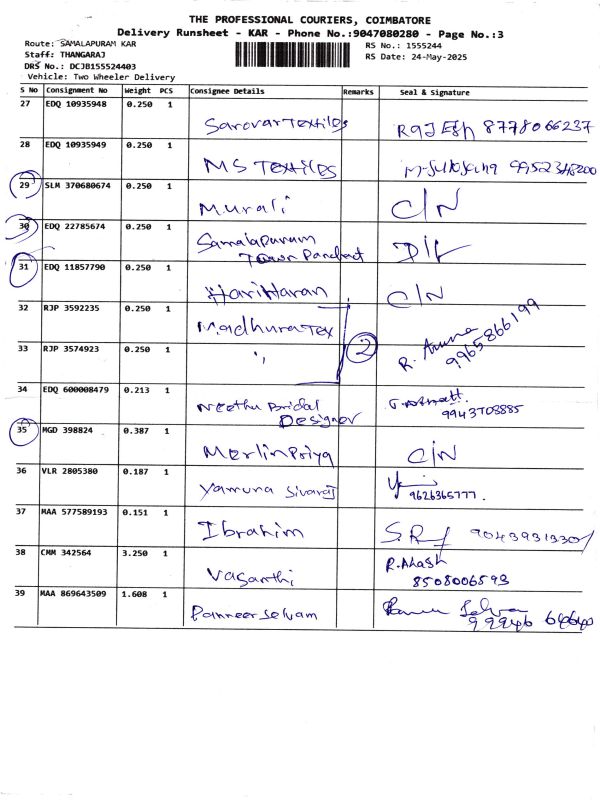 THE PROFESSIONAL COURIERS, COIMBATORE
Delivery Runsheet - KAR - Phone No.:9047080280 - Page No.:3
Route: SAMALAPURAM KAR
RS No.: 1555244
Staff: THANGARAJ
RS Date: 24-May-2025
DRS No.: DCJB155524403
Vehicle: Two Wheeler Delivery
S No Consignment No Weight PCS Consignee Details Remarks Seal & Signature
27 EDQ 10935948 0.250 1
Sarovar Textiles RAJESH 8778066237
28 EDQ 10935949 0.250 1
MS Textiles 9952348200
29 SLM 370680674 0.250 1
Murali C/N
30 EDQ 22785674 0.250 1
Samalapuram
Town Panchact D/L
31 EDQ 11857790 0.250 1
Hariharan C/N
32 RJP 3592235 0.250 1
Madhura Tex
33 RJP 3574923 0.250 1
" 2 R. Aruna
9965866199
34 EDQ 600008479 0.213 1
Neethu Bridal
Designer 9943703885
35 MGD 398824 0.387 1
Merlin Priya C/N
36 VLR 2805380 0.187 1
Yamuna Sivaraj 9626365777.
37 MAA 577589193 0.151 1
Ibrahim S.R 9043931330
38 CMM 342564 3.250 1
Vasanthi R.Akash
8508006593
39 MAA 869643509 1.608 1
Panneer Selvam Selva
99946 64640